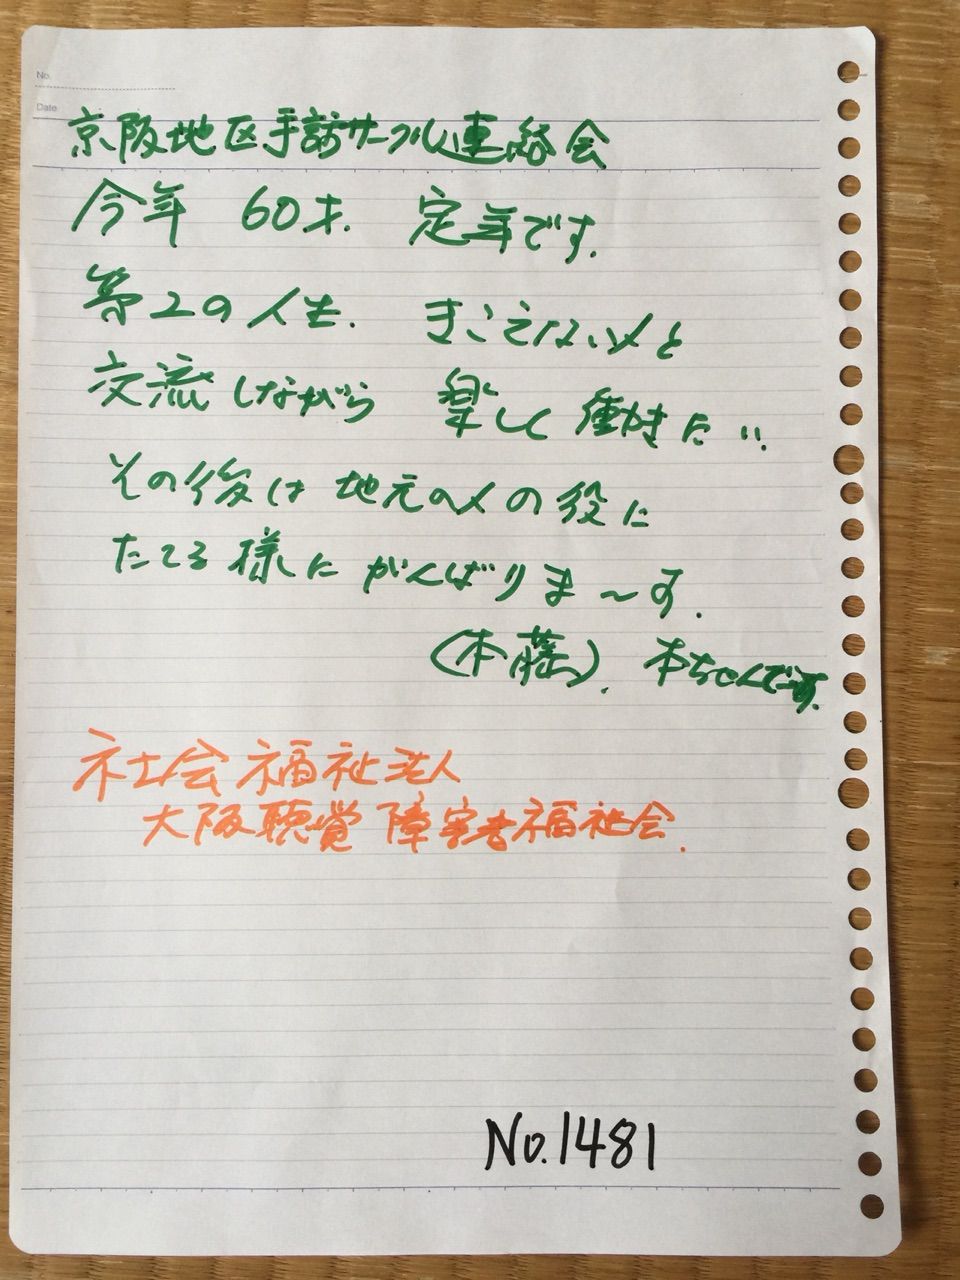 No.
Date
京阪地区手話サークル連絡会
今年 60才. 定年です.
第2の人生. きこえない人と
交流しながら 楽しく 働きたい.
その後は 地元の人の役に
たてる様に がんばりま〜す.
(本藤). 本ちゃんで〜す.
社会福祉法人
大阪聴覚障害者福祉会.
No.1481